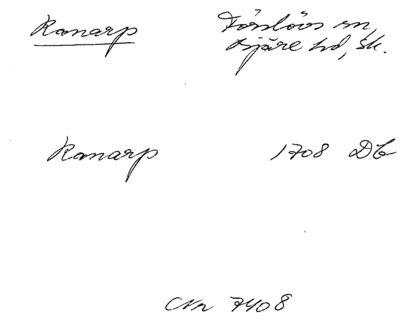 Ranarp Förslövs sn,
Bjäre hd, Sk.
Ranarp 1708 Db
Nr 7408